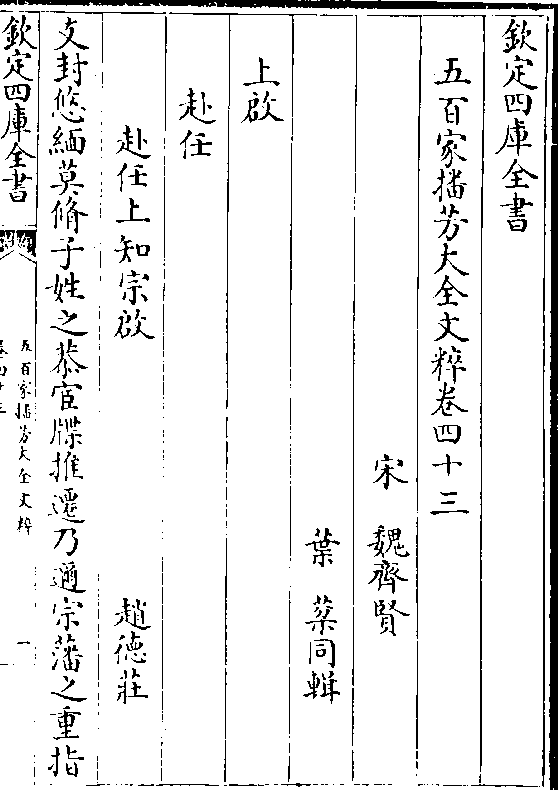 欽定四庫全書
五百家播芳大全文粹卷四十三
宋 魏齊賢
葉棻同輯
上啟
赴任
赴任上知宗啟 趙德莊
支封悠緬莫脩子姓之恭宦牒推遷乃邇宗藩之重指
欽定四庫全書
五百家播芳大全文粹 一
卷四十三